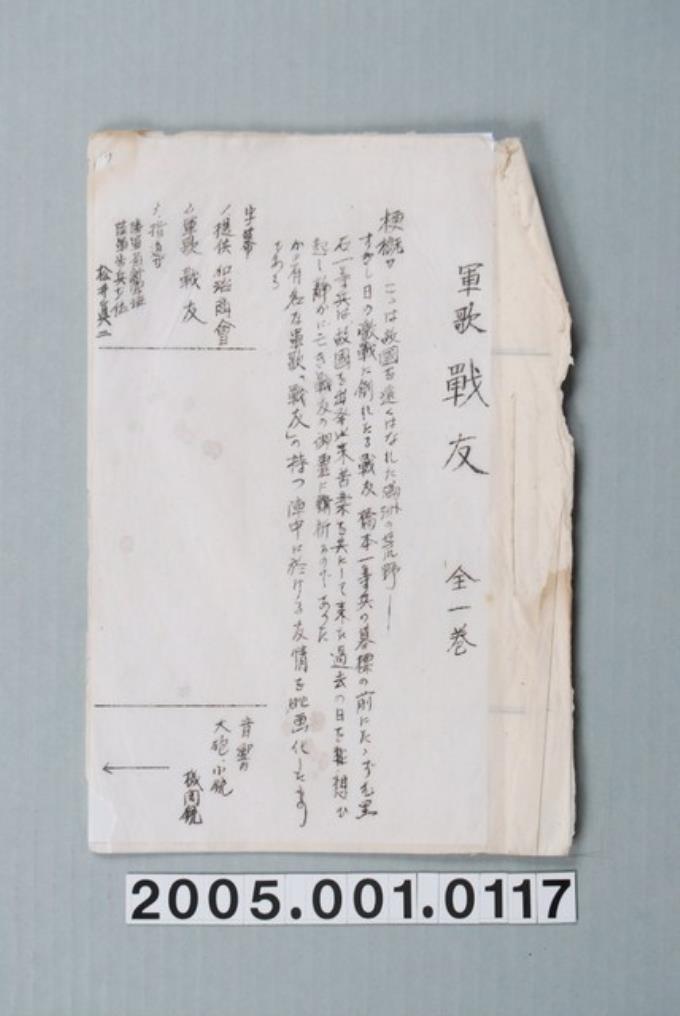 軍歌 戰友 全一巻
梗概 ここは故國を遠くはなれた満洲の荒野――
すぎし日の激戦に倒れたる戰友 橋本一等兵の墓標の前にたゝずむ黒
石一等兵は故國を出発以来苦楽を共にして来た過去の日を想ひ
起し静かに亡き戰友の御霊に祈るのであった
かの有名な軍歌「戰友」の持つ陣中に於ける友情を映画化したもの
である
字幕
提供 和治商會
軍歌 戰友
指導
松井真二
音響
大砲、小銃
機関銃
2005.001.0117